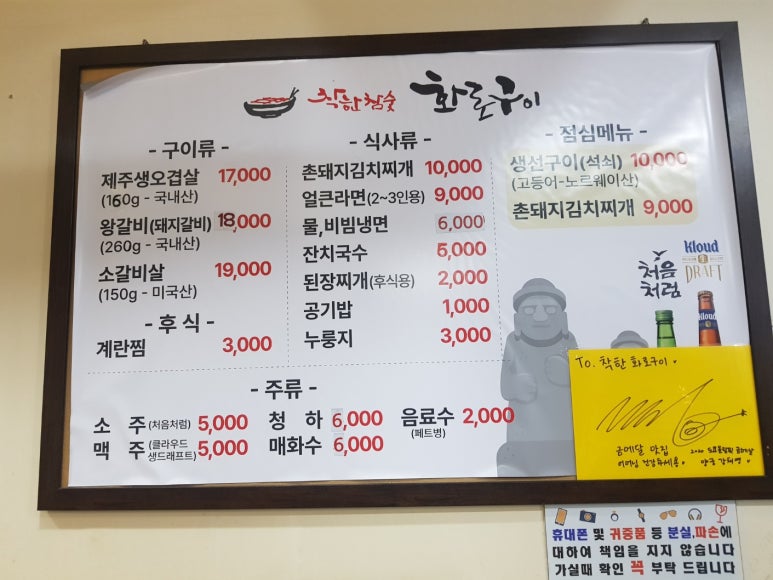 착한참숯 화로구이
- 구이류 -
제주생오겹살 17,000
(160g - 국내산)
왕갈비(돼지갈비) 18,000
(260g - 국내산)
소갈비살 19,000
(150g - 미국산)
- 후 식 -
계란찜 3,000
- 식사류 -
촌돼지김치찌개 10,000
얼큰라면(2~3인용) 9,000
물,비빔냉면 6,000
잔치국수 5,000
된장찌개(후식용) 2,000
공기밥 1,000
누룽지 3,000
- 점심메뉴 -
생선구이(석쇠) 10,000
(고등어-노르웨이산)
촌돼지김치찌개 9,000
처음
처럼
kloud
DRAFT
kloud
- 주류 -
소 주(처음처럼) 5,000
맥 주(클라우드 생드래프트) 5,000
청 하 6,000
매화수 6,000
음료수 2,000
(페트병)
To. 착한 화로구이.
금메달 맛집
어머님 건강하세요.
휴대폰 및 귀중품 등 분실,파손에
대하여 책임을 지지 않습니다
가실때 확인 꼭 부탁 드립니다